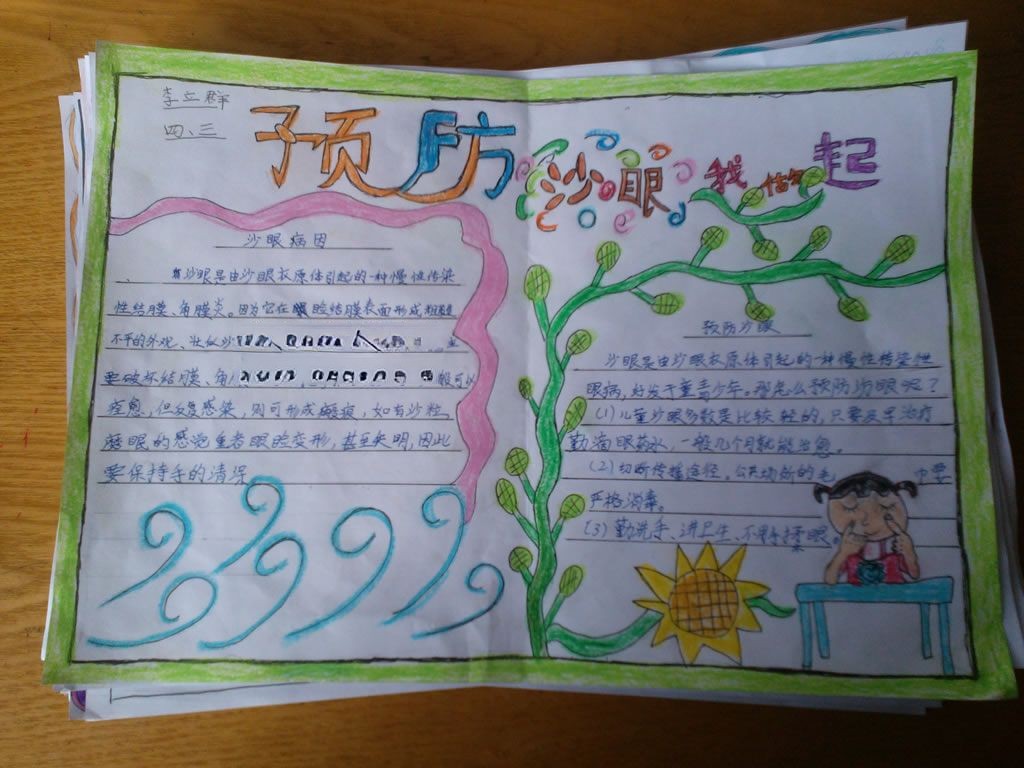 李立群
四、三
预防沙眼我 起
沙眼病因
沙眼是由沙眼衣原体引起的一种慢性传染
性结膜、角膜炎。因为它在睑结膜表面形成粗糙
不平的外观、状似沙
要破坏结膜、角 般可以
痊愈,但反复感染,则可形成瘢痕,如有沙粒
磨眼的感觉重者眼睑变形,甚至失明,因此
要保持手的清洁
预防沙眼
沙眼是由沙眼衣原体引起的一种慢性传染性
眼病,好发于童青少年。那怎么预防沙眼呢?
(1)儿童沙眼多数是比较轻的,只要及早治疗
勤滴眼药水,一般几个月就能治愈。
(2)切断传播途径。公共场所的毛 中要
严格消毒。
(3)勤洗手、讲卫生、不用手揉眼。